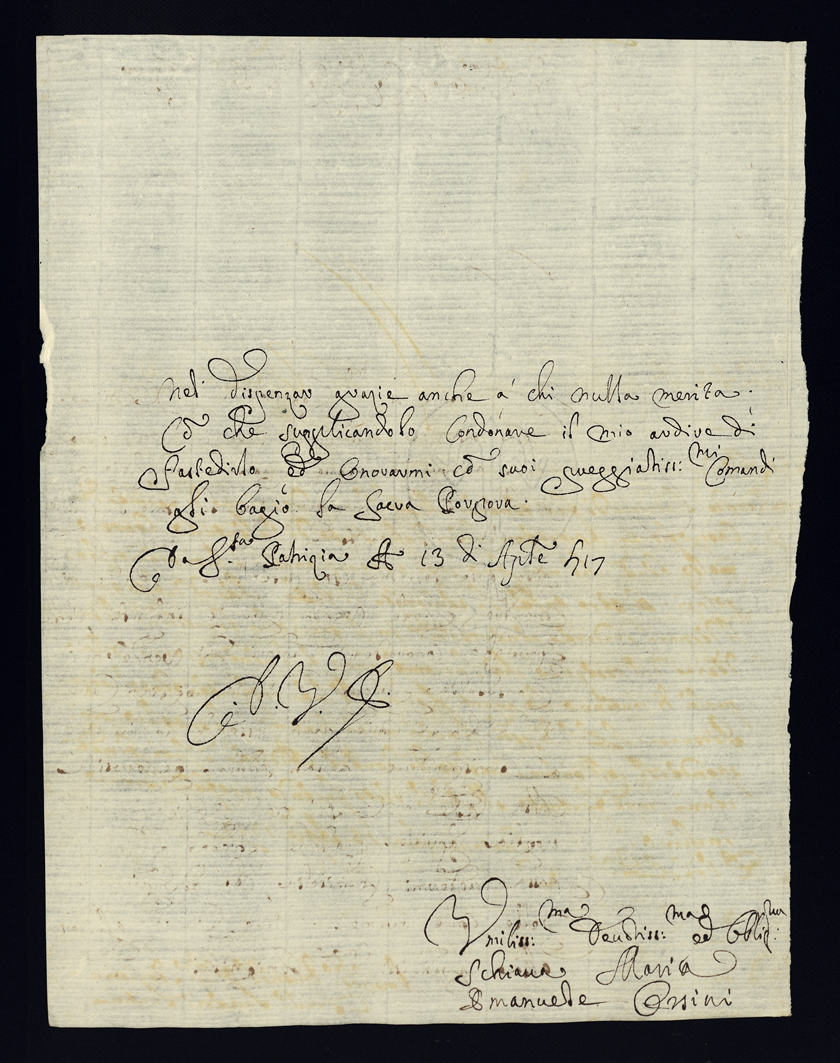 nel dispenzar grazie anche á chi nulla merita.
Cō che supplicandolo Condonare il mio ardire di
fastedirlo ed onorarmi cō suoi preggiatiss:mi Comandi
gli bagio la Sacra Porpora.
Da S.ta Patrizia A 13 di Aple 717
D. V. E.
Vmiliss:ma Deuotiss:ma ed Obblig:ma
Schiaua Maria
Emanuele Orsini